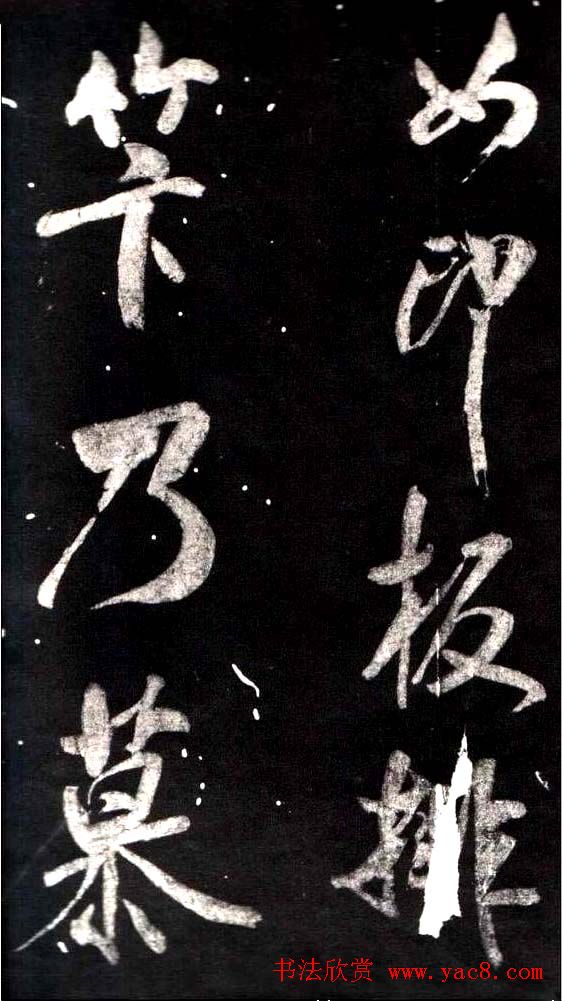 如印板排
笇乃慕
书法欣赏 www.yac8.com